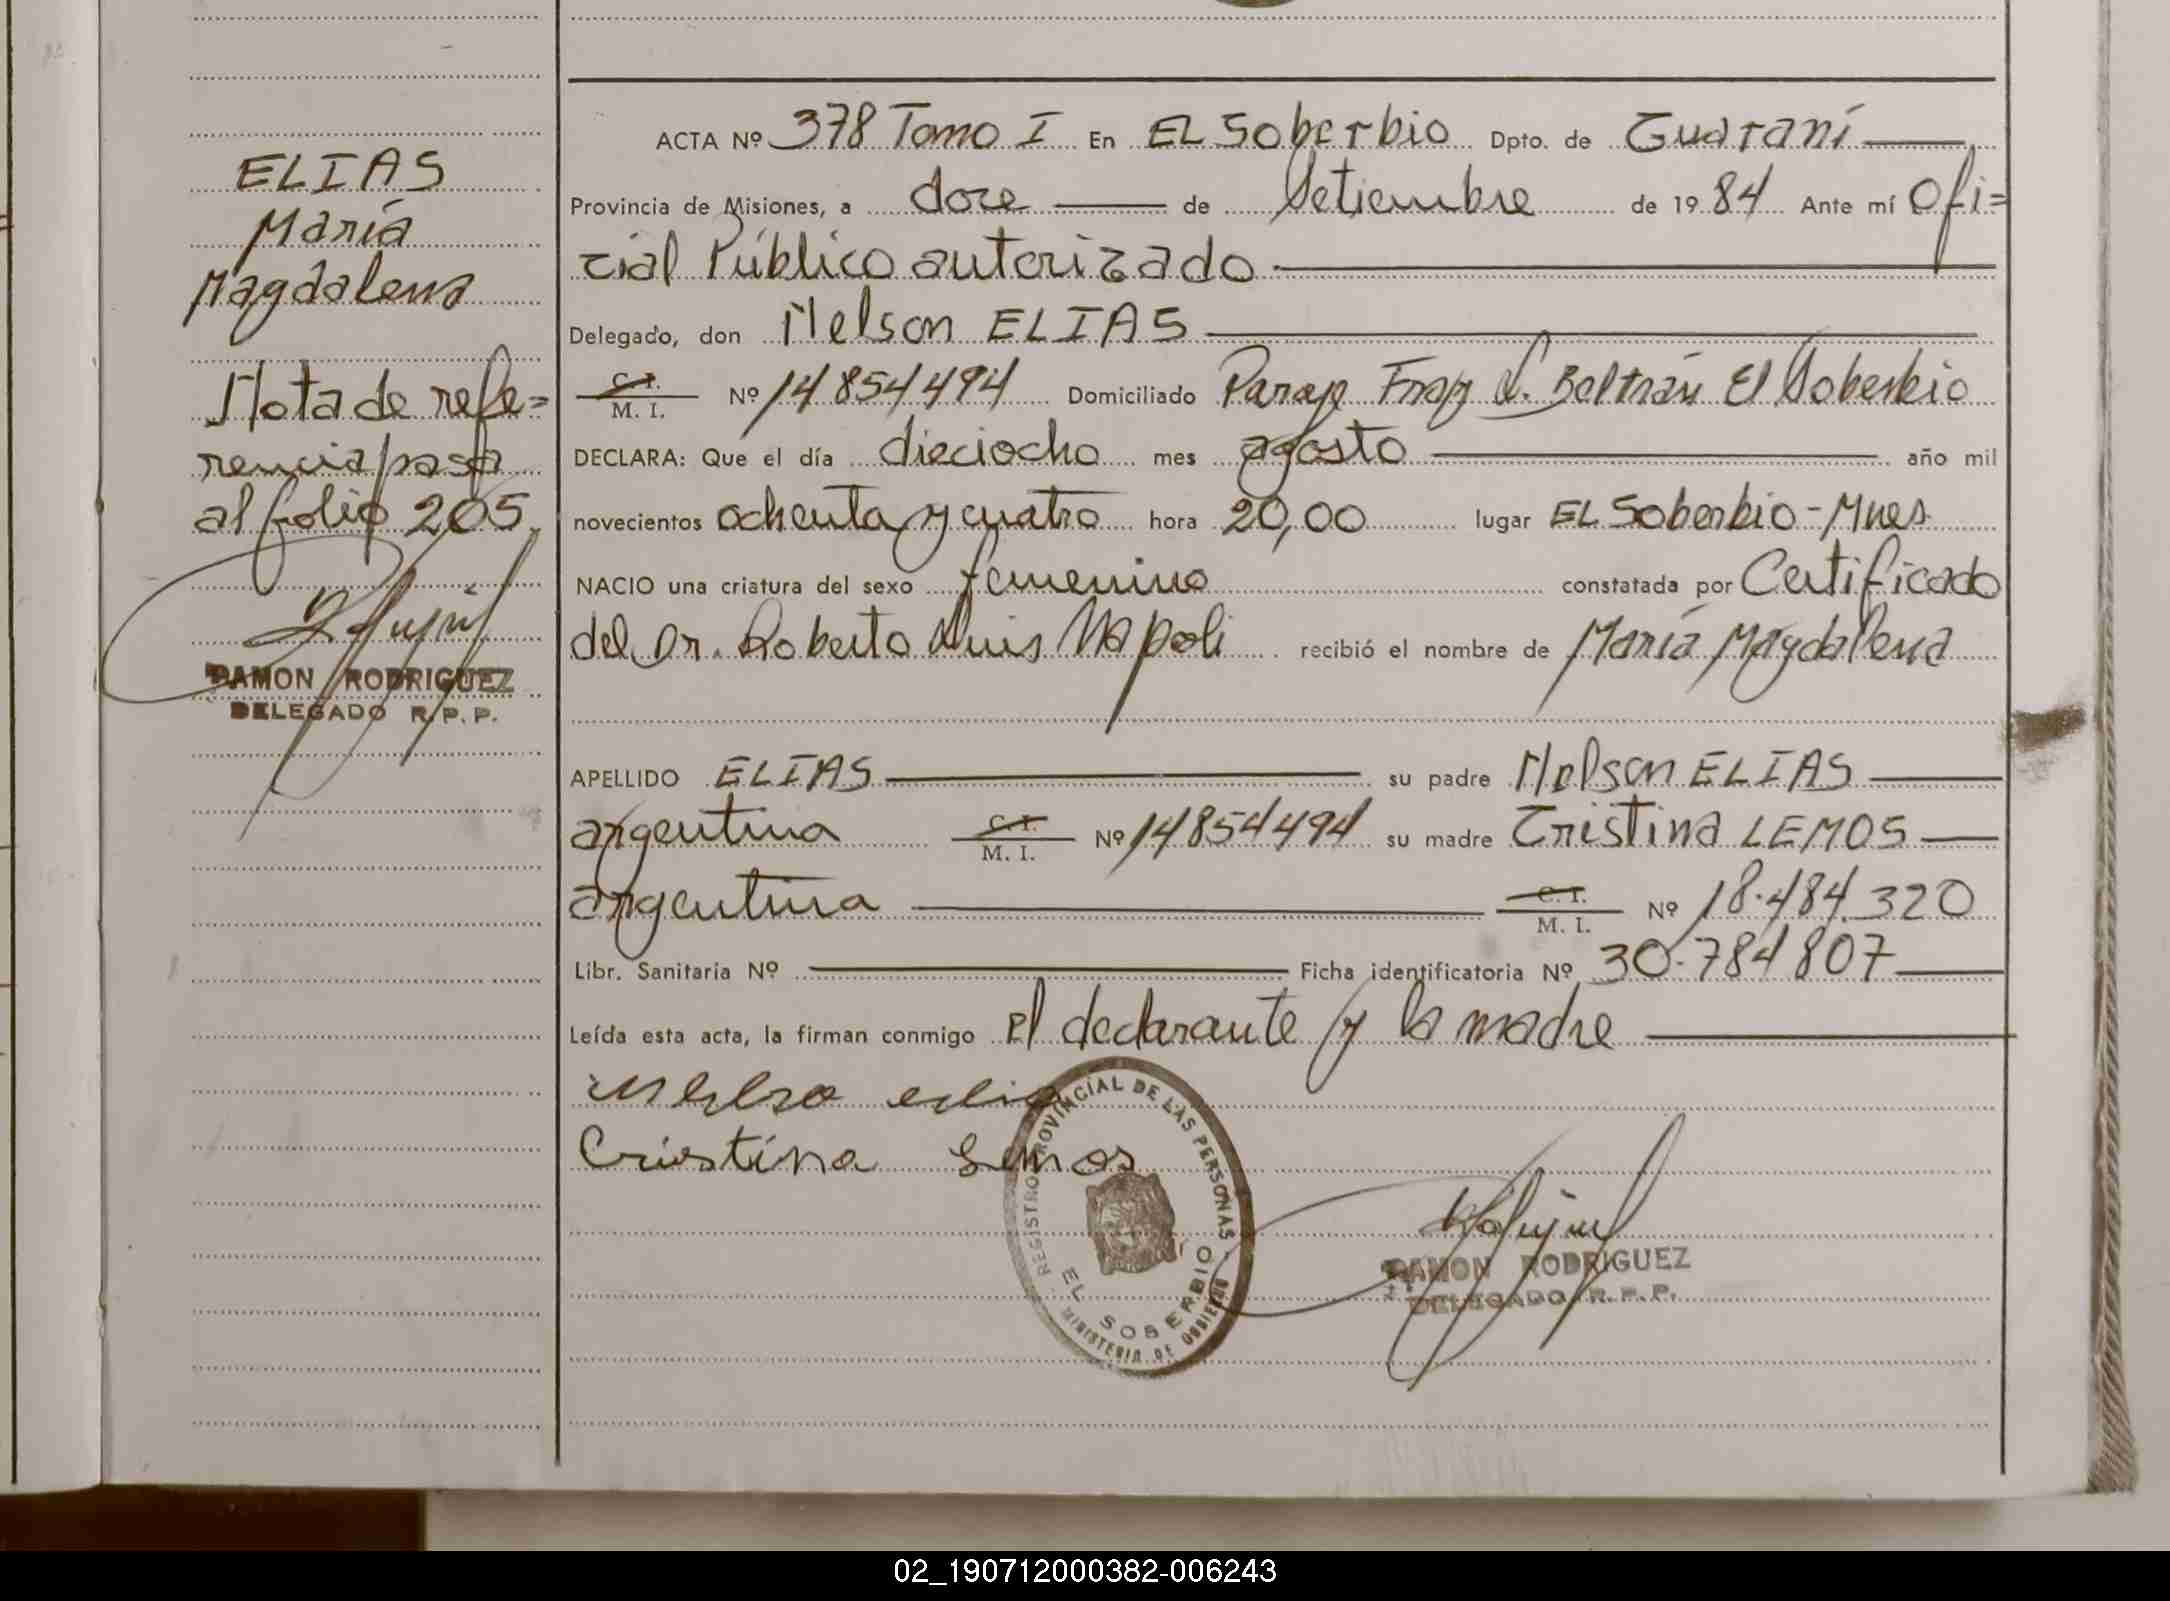 ELIAS
María
Magdalena
Nota de refe=
rencia pasa
al folio 205
RAMON RODRIGUEZ
DELEGADO R.P.P.
ACTA Nº 378 Tomo I En EL Soberbio Dpto. de Guaraní
Provincia de Misiones, a doce de Setiembre de 1984 Ante mí Ofi=
cial Público autorizado
Delegado, don Nelson ELIAS
C. I.
M. I. Nº 14854494 Domiciliado Paraje Fray L. Beltrán El Soberbio
DECLARA: Que el día dieciocho mes agosto año mil
novecientos ochenta y cuatro hora 20,00 lugar EL Soberbio-Mnes
NACIO una criatura del sexo femenino constatada por Certificado
del Dr. Roberto Luis Napoli recibió el nombre de María Magdalena
APELLIDO ELIAS su padre Nelson ELIAS
argentina C. I. M. I. Nº 14854494 su madre Cristina LEMOS
argentina C. I. M. I. Nº 18.484.320
Libr. Sanitaria Nº Ficha identificatoria Nº 30.784807
Leída esta acta, la firman conmigo el declarante y la madre
elias
Cristina Lemos
REGISTRO PROVINCIAL DE LAS PERSONAS
EL SOBERBIO
MINISTERIO DE GOBIERNO
RAMON RODRIGUEZ
DELEGADO R.P.P.
02_190712000382-006243